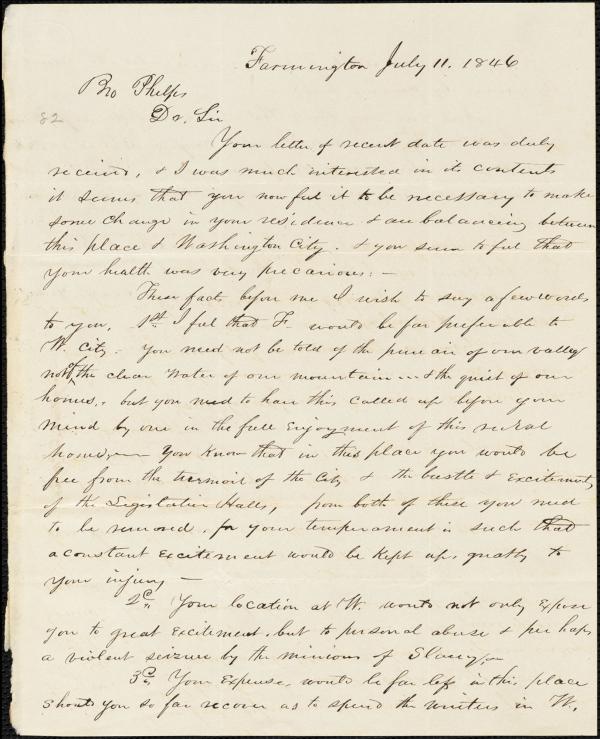 Farmington July 11. 1846
Bro Phelps
82
Dr. Sir
Your letter of recent date was duly
received, & I was much interested in its contents
it seems that you now feel it to be necessary to make
some change in your residence & are balancing between
this place & Washington City. & you seem to feel that
your health was very precarious: –
These facts before me I wish to say a few words
to you. 1st. I feel that F. would be far preferable to
W. City. you need not be told of the pure air of our valley
nor of the clear water of our mountain – & the quiet of our
homes, but you need to have this called up before your
mind by one in the full enjoyment of this rural
home, – You know that in this place you would be
free from the turmoil of the City & the bustle & excitements
of the Legislative Halls, from both of these you need
to be removed, for your temperament is such that
a constant excitement would be kept up, greatly to
your injury –
2d, Your location at W. would not only expose
you to great excitement, but to personal abuse & perhaps
a violent seizure by the minions of Slavery, –
3d, Your Expense, would be far less in this place
Should you so far recover as to spend the winters in W.